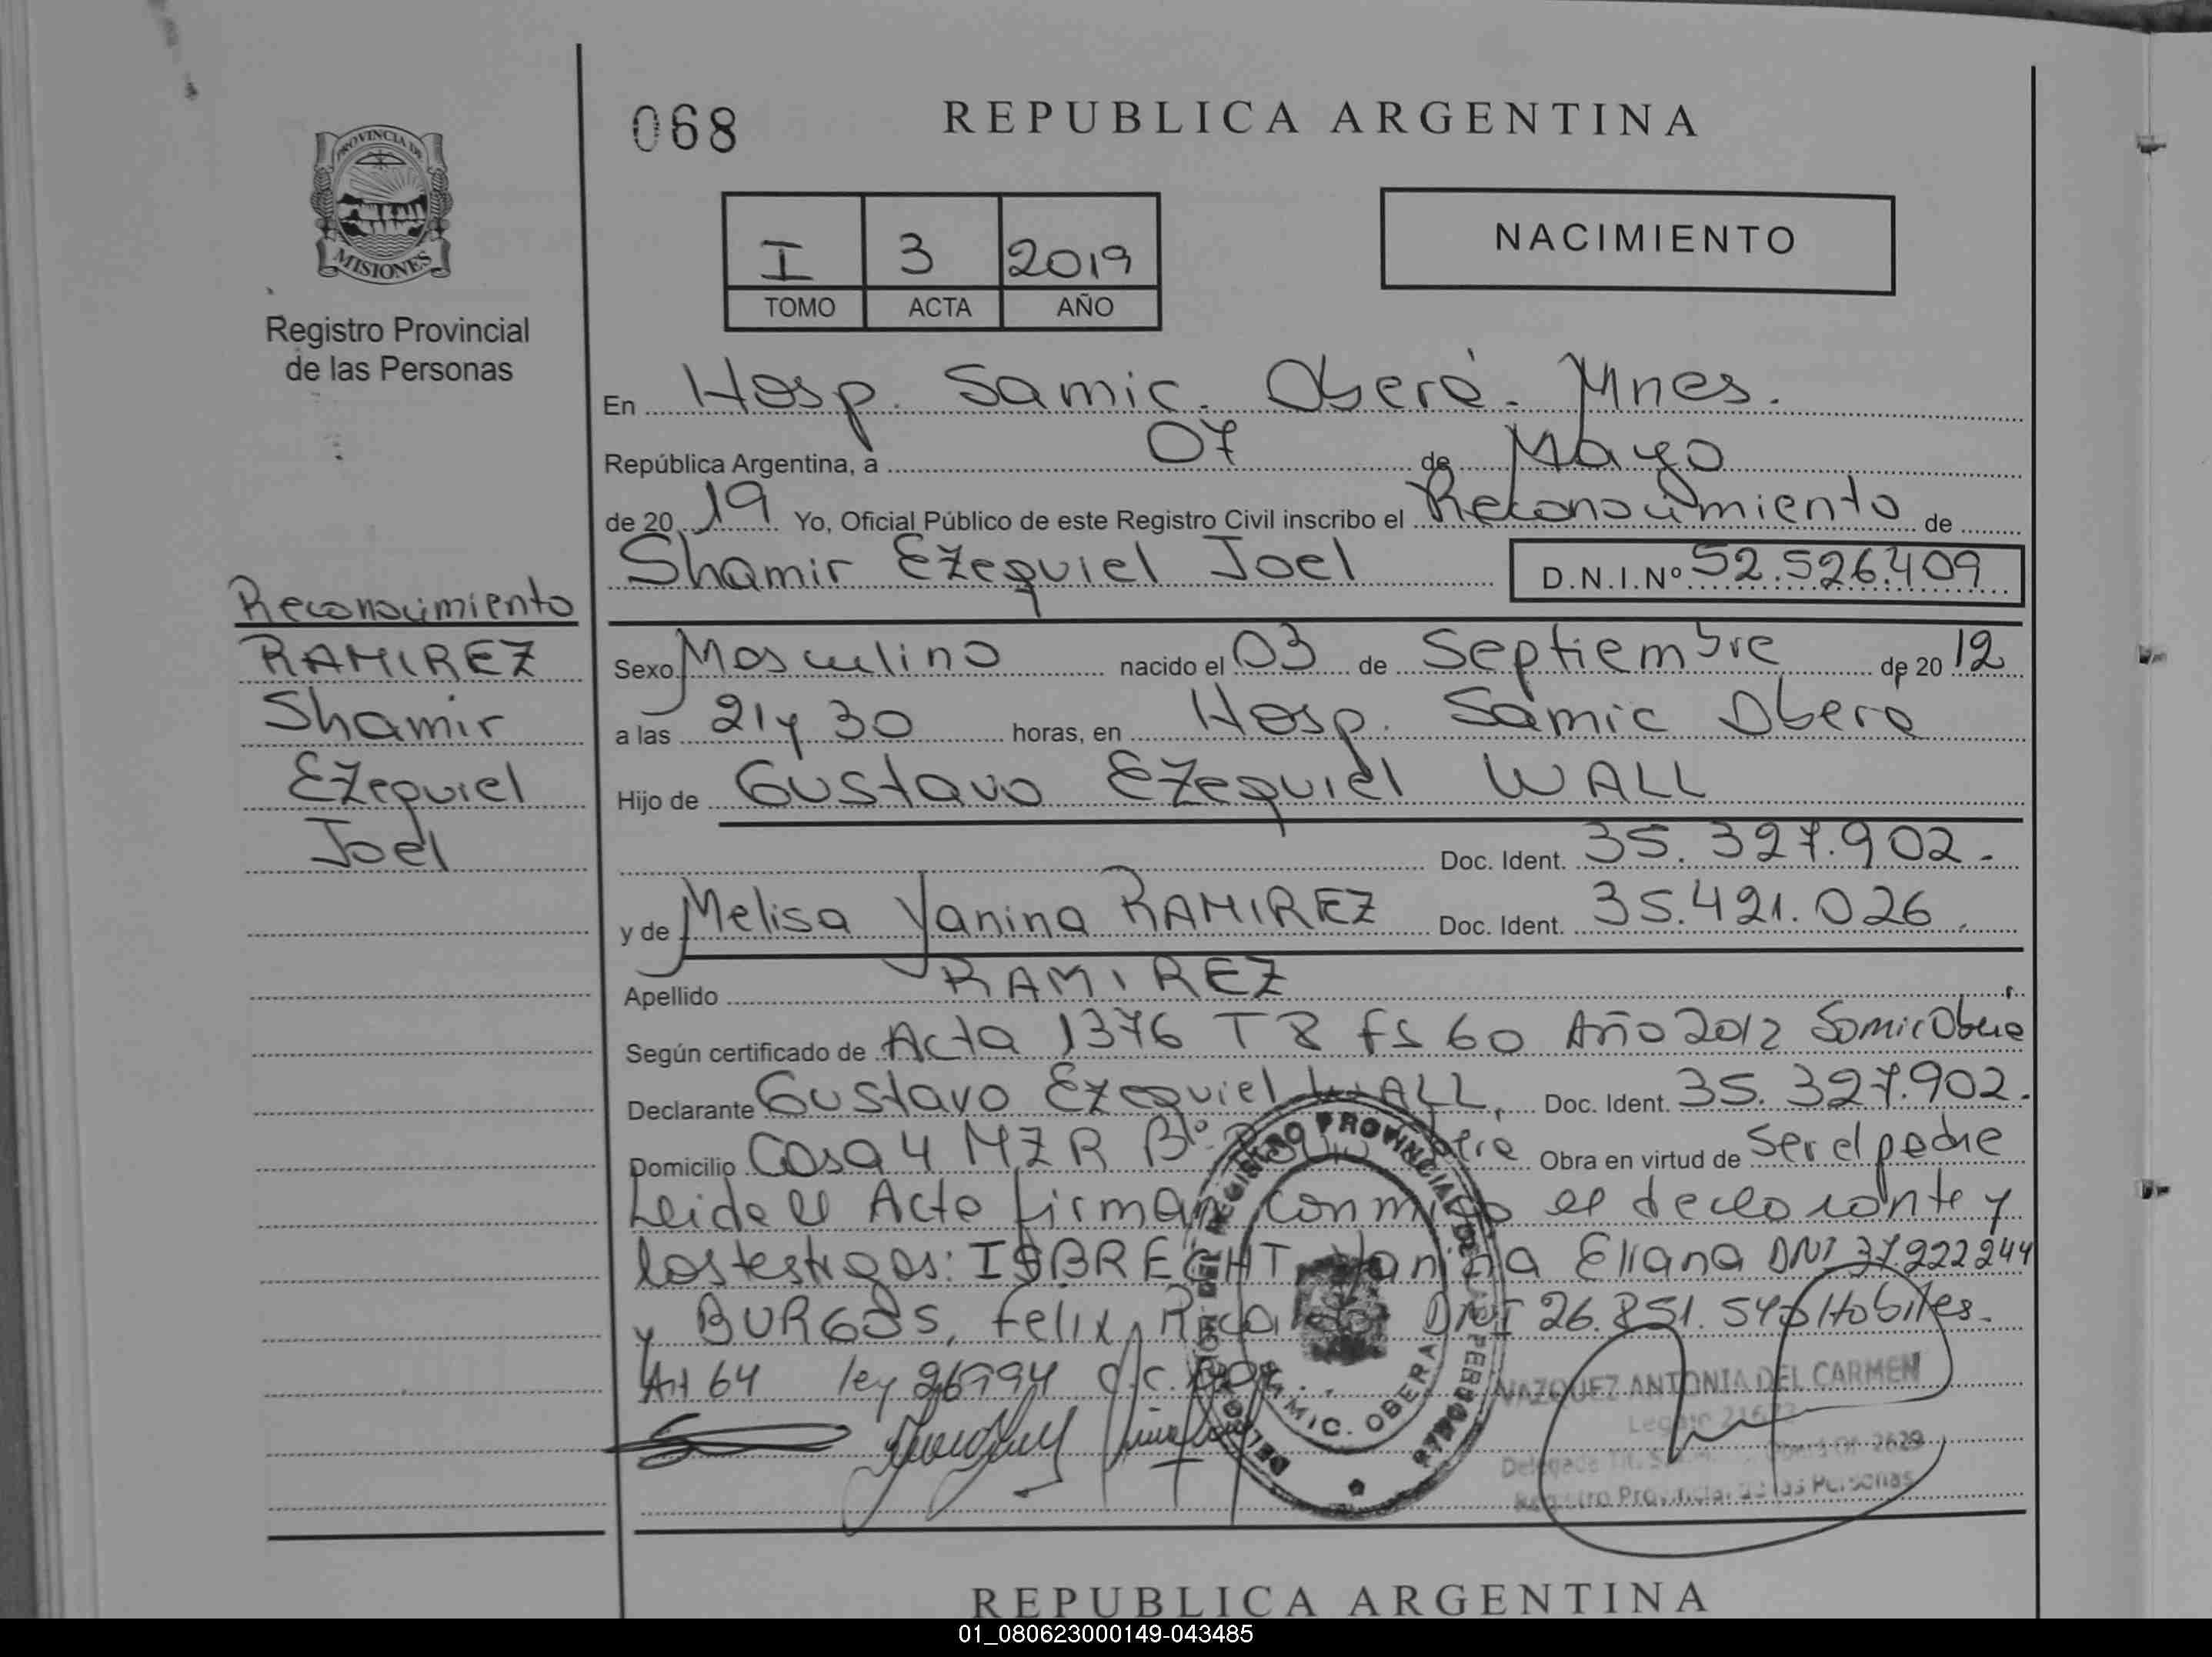 068
REPUBLICA ARGENTINA
PROVINCIA DE
MISIONES
Registro Provincial
de las Personas
I 3 2019
TOMO ACTA AÑO
NACIMIENTO
En Hosp. Samic. Oberá. Mnes.
República Argentina, a 07 de Mayo
de 20 19 Yo, Oficial Público de este Registro Civil inscribo el Reconocimiento de
Shamir Ezequiel Joel D.N.I.Nº 52.526.409
Reconocimiento
RAMIREZ
Shamir
Ezequiel
Joel
Sexo Masculino nacido el 03 de Septiembre de 20 12
a las 21 y 30 horas, en Hosp. Samic Obera
Hijo de Gustavo Ezequiel WALL
Doc. Ident. 35.327.902.
y de Melisa Yanina RAMIREZ Doc. Ident. 35.421.026
Apellido RAMIREZ
Según certificado de Acta 1376 T 8 fs 60 Año 2012 Samic Obera
Declarante Gustavo Ezequiel WALL, Doc. Ident. 35.327.902.
Domicilio Casa 4 MZ R Bº Obra en virtud de Ser el padre
Leida el Acta firman conmigo el declarante y
los testigos: ISBRECHT Yanina Eliana DNI 37.222244
y BURGOS, Felix, DNI 26.851. Habiles.
Art 64 ley 26994
REGISTRO PROVINCIAL DE LAS PERSONAS
SAMIC. OBERA
VAZQUEZ ANTONIA DEL CARMEN
Legajo
Registro Provincial de las Personas
REPUBLICA ARGENTINA
01_080623000149-043485